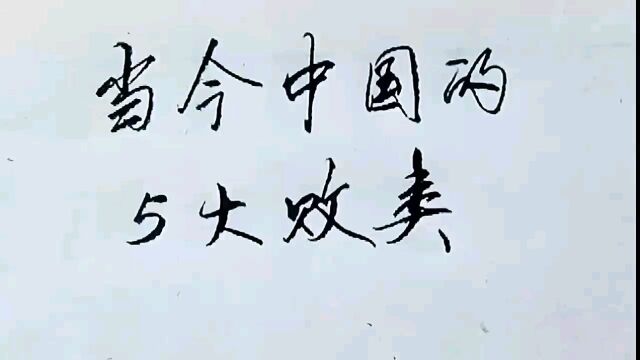 当今中国的
5大败类